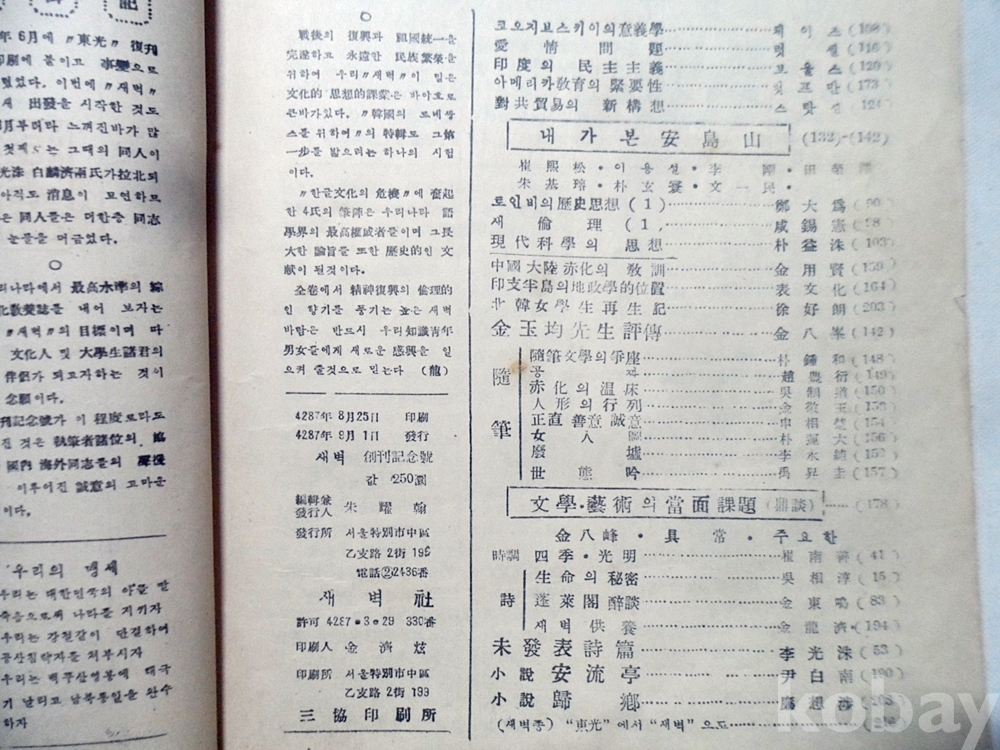 記
年 6月에 〃東光〃 復刊
印刷에 붙이고 事變으로
혔었다. 이번에 〃새벽〃
새 出發을 시작한 것도
月부터라 느껴진바가 많
첫째는 그때의 同人이
光洙 白麟濟兩氏가拉北의
아직도 消息이 묘연하고
은 同人들은 더한층 同志
눈물을 머금었다.
○
리나라에서 最高水準의 綜
化敎養誌를 내어 보자는
〃새벽〃의 目標이며 다
文化人 및 大學生諸君의
伴侶가 되고자하는 것이
念願이다.
刊記念號가 이 程度로라도
진 것은 執筆者諸位의 協
國內 海外同志들의
이루어진 誠意의 고마운
이다.
우리의 맹세
우리는 대한민국의 아들 딸
죽음으로써 나라를 지키자
우리는 강철같이 단결하여
공산침략자를 쳐부시자
우리는 백두산영봉에 태극
기 날리고 남북통일을 완수
하자
○
戰後의 復興과 祖國統一을
完遂하고 永遠한 民族繁榮을
위하여 우리 〃새벽〃이 밑은
文化的 思想的課業은 바야흐로
큰바가있다. 〃韓國의 르네쌍
스를 위하여〃의 特輯도 그第
一步를 밟으려는 하나의 시험
이다.
〃한글文化의 危機〃에 奮起
한 4氏의 筆陣은 우리나라 語
學界의 最高權威者들이며 그長
大한 論旨들 또한 歷史的인 文
献이 될것이다.
全卷에서 精神復興의 倫理的
인 향기를 풍기는 높은 새벽
바람은 반드시 우리知識靑年
男女들에게 새로운 感興을 일
으켜 줄것으로 믿는다 (龍)
4287年 8月25日 印刷
4287年 9月1日 發行
새벽 創刊記念號
값 250圜
編輯兼
發行人 朱耀翰
發行所 서울特別市中區
乙支路 2街 199
電話②2436番
새벽社
許可 4287•3•29 330番
印刷人 金濟炫
印刷所 서울特別市中區
乙支路 2街 199
三協印刷所
코오지브스키이의意義學 헤이즈 (108)
愛情問題 (116)
印度의 民主主義 보울스 (120)
아메리카敎育의 緊要性 (173)
對共貿易의 新構想 (124)
내가본安島山 (132)-(142)
崔熙松•이용설•李剛•田榮澤
朱基瑢•朴玄寰•文一民•
토인비의歷史思想 (1) 鄭大爲 (90)
새 倫理 (1) 咸錫憲 (98)
現代科學의 思想 朴益洙 (103)
中國大陸赤化의 敎訓 金用賢 (159)
印支半島의地政學的位置 表文化 (164)
北韓女學生再生記 徐好朗 (203)
金玉均先生評傳 金八峯 (142)
隨筆
隨筆文學의爭座 朴鍾和 (148)
趙豊衍 (149)
赤化의溫床 (150)
人形의行列
正直善意誠意 申相楚 (154)
女人 (156)
廢墟 (157)
世態吟 禹昇圭 (157)
文學•藝術의當面課題 (鼎談) (178)
金八峰•具常•주요한
時調 四季•光明 崔南善 (41)
詩
生命의秘密 吳相淳 (15)
蓬萊閣醉談 金東鳴 (83)
새벽供養 金龍濟 (194)
未發表詩篇 李光洙 (53)
小說 安流亭 尹白南 (190)
小說 歸鄕 (208)
(새벽종) 〝東光〞에서 〝새벽〞으로
kobay